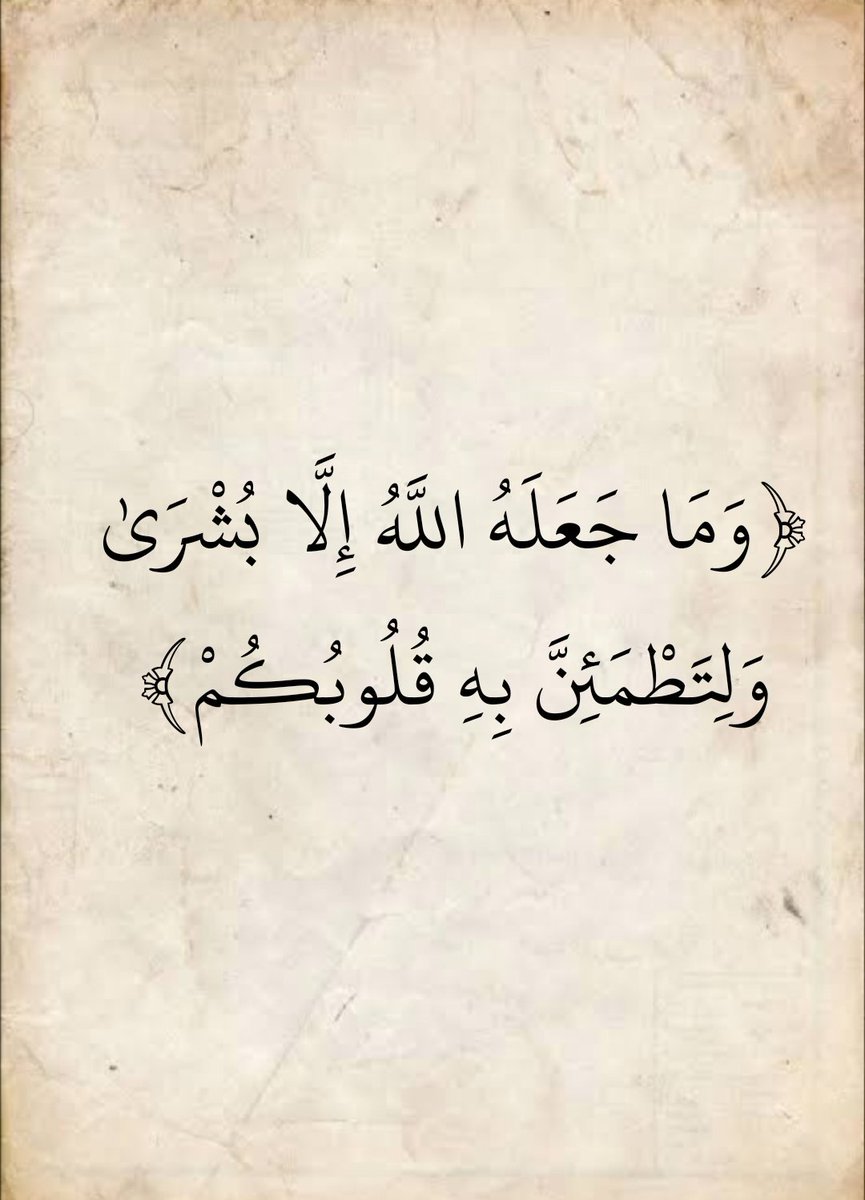 ﴿وَمَا جَعَلَهُ اللَّهُ إِلَّا بُشْرَىٰ
وَلِتَطْمَئِنَّ بِهِ قُلُوبُكُمْ﴾